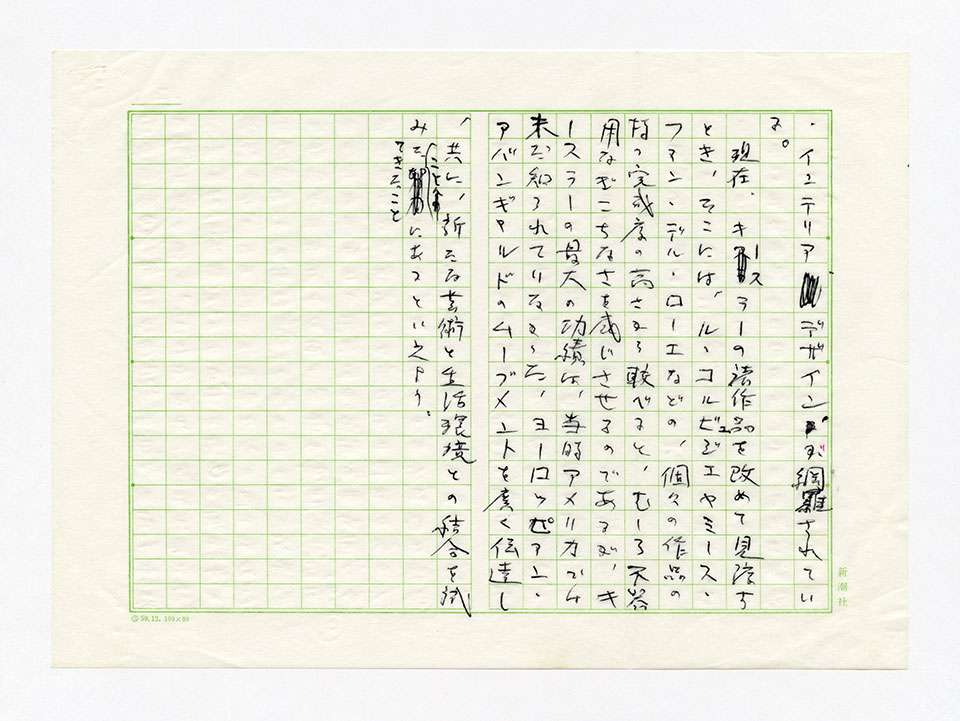 ・インテリアデザインが網羅されてい
る。
現在、キースラーの諸作品を改めて見渡す
とき、そこには、ル・コルビュジエやミース・
ファン・デル・ローエなどの、個々の作品の
持つ完成度の高さから較べると、むしろ不器
用なぎこちなさを感じさせるのであるが、キ
ースラーの最大の功績は、当時アメリカでは
未だ知られていなかった、ヨーロッピアン・
アバンギャルドのムーブメントを広く伝達し
、共に、新たな芸術と生活環境との結合を試
みてきたことにあるといえよう。
新潮社
59.12. 100×50